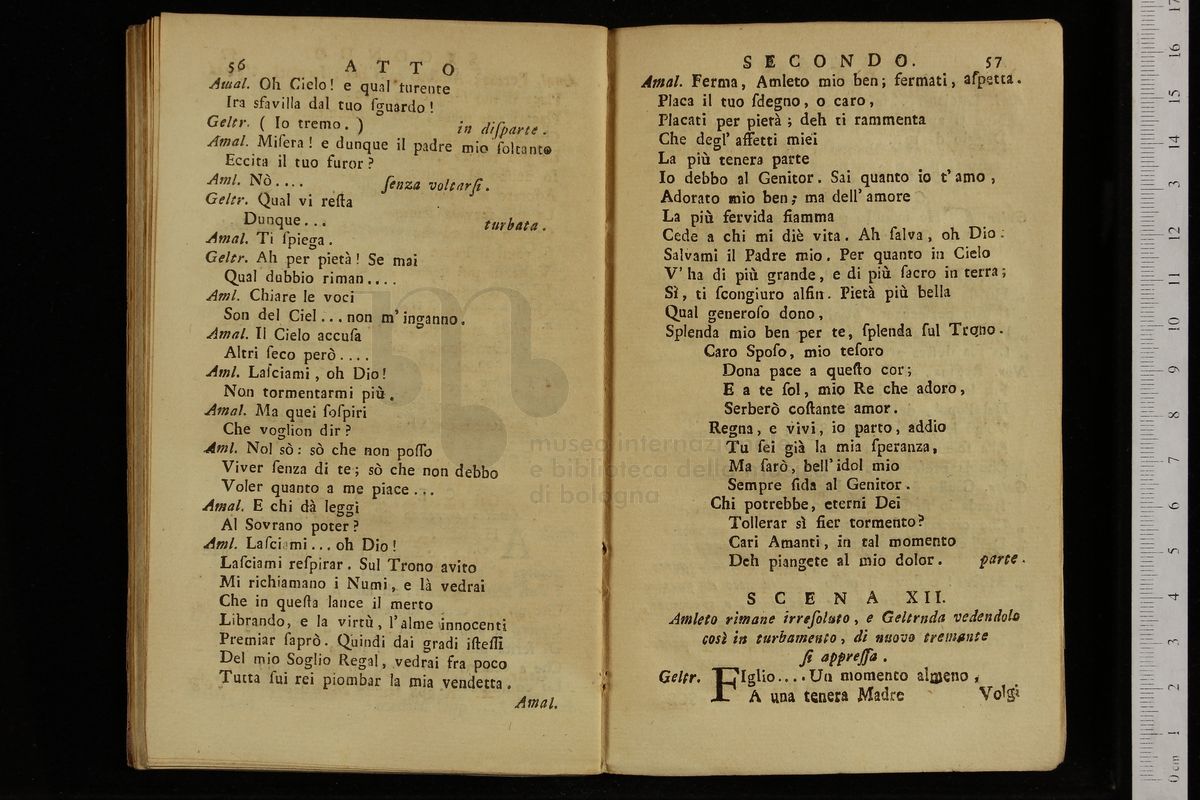 56 ATTO
Amal. Oh Cielo! e qual turente
Ira sfavilla dal tuo ſguardo!
Geltr. ( Io tremo. ) in diſparte.
Amal. Miſera! e dunque il padre mio ſoltanto
Eccita il tuo furor?
Aml. Nò.... ſenza voltarſi.
Geltr. Qual vi reſta
Dunque... turbata.
Amal. Ti ſpiega.
Geltr. Ah per pietà! Se mai
Qual dubbio riman....
Aml. Chiare le voci
Son del Ciel... non m'inganno.
Amal. Il Cielo accuſa
Altri ſeco però....
Aml. Laſciami, oh Dio!
Non tormentarmi più.
Amal. Ma quei ſoſpiri
Che voglion dir?
Aml. Nol sò: sò che non poſſo
Viver ſenza di te; sò che non debbo
Voler quanto a me piace...
Amal. E chi dà leggi
Al Sovrano poter?
Aml. Laſciami... oh Dio!
Laſciami reſpirar. Sul Trono avito
Mi richiamano i Numi, e là vedrai
Che in queſta lance il merto
Librando, e la virtù, l'alme innocenti
Premiar ſaprò. Quindi dai gradi iſteſſi
Del mio Soglio Regal, vedrai fra poco
Tutta ſui rei piombar la mia vendetta.
Amal.
SECONDO. 57
Amal. Ferma, Amleto mio ben; fermati, aſpetta.
Placa il tuo ſdegno, o caro,
Placati per pierà; deh ti rammenta
Che degl' affetti miei
La più tenera parte
Io debbo al Genitor. Sai quanto io t'amo,
Adorato mio ben; ma dell'amore
La più fervida fiamma
Cede a chi mi diè vita. Ah ſalva, oh Dio.
Salvami il Padre mio. Per quanto in Cielo
V'ha di più grande, e di più ſacro in terra;
Sì, ti ſcongiuro alfin. Pietà più bella
Qual generoſo dono,
Splenda mio ben per te, ſplenda ſul Trono.
Caro Spoſo, mio teſoro
Dona pace a queſto cor;
E a te ſol, mio Re che adoro,
Serberò coſtante amor.
Regna, e vivi, io parto, addio
Tu ſei già la mia ſperanza,
Ma ſarò, bell'idol mio
Sempre fida al Genitor.
Chi potrebbe, eterni Dei
Tollerar sì fier tormento?
Cari Amanti, in tal momento
Deh piangete al mio dolor. parte.
SCENA XII.
Amleto rimane irreſoluto, e Geltrnda vedendolo
così in turbamento, di nuovo tremante
ſi appreſſa.
Geltr. FIglio.... Un momento almeno,
A una tenera Madre
Volgi
museo internazionale
e biblioteca della
di bologna
0 cm 1 2 3 4 5 6 7 8 9 10 11 12 13 14 15 16 17